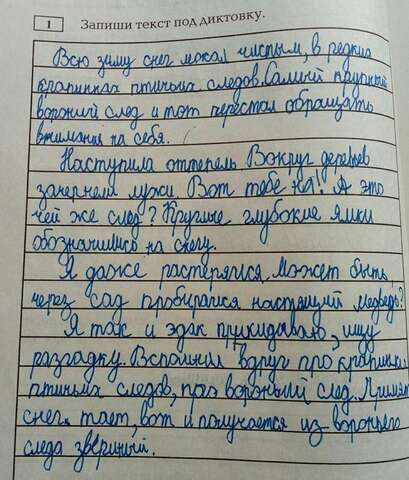 1 Запиши текст под диктовку.
Всю зиму снег лежал чистым, в редких
крапинках птичьих следов. Самый крупный
вороний след и тот перестал обращать
внимания на себя.
Наступила оттепель. Вокруг деревьев
зачернели лужи. Вот тебе на! А это
чей же след? Круглые глубокие ямки
обозначились на снегу.
Я даже растерялся. Может быть
через сад пробирался настоящий медведь?
Я так и эдак прикидываю, ищу
разгадку. Вспомнил вдруг про крапинки
птичьих следов, про вороньий след. Пригляд
снег тает, вот и получается из вороньего
следа звериный.